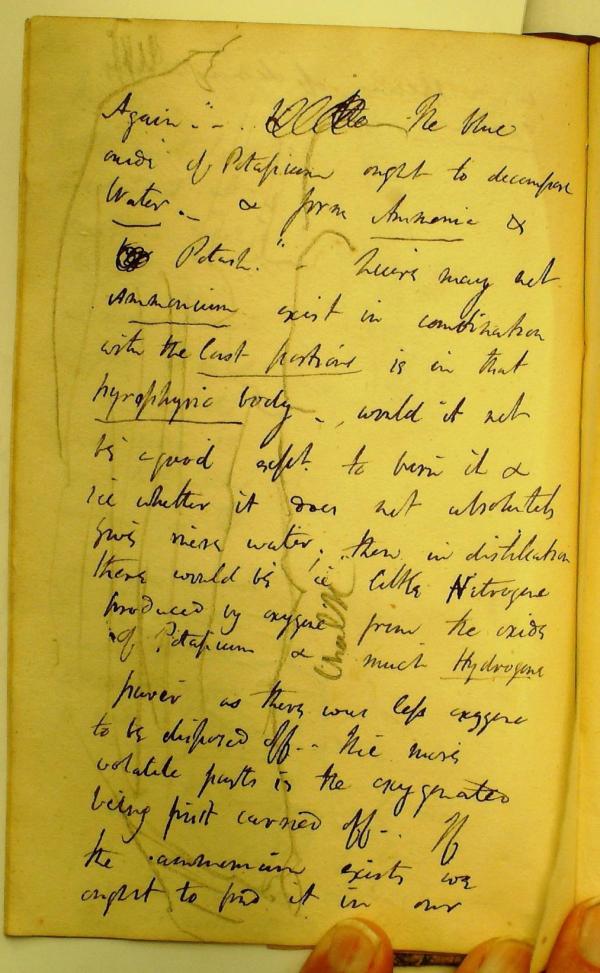 Again - The blue
oxide of Potassium ought to decompose
Water - & form Ammonia &
Potash. - may not
Ammonium exist in combination
with the last portions is in that
pyrophyric body -, would it not
be a good expt. to burn it &
see whether it does not absolutely
give more water; then in distillation
there would be little Nitrogene
produced by oxygene from the oxide
of Potassium & much Hydrogene
purer as there was less oxygene
to be disposed off -. The more
volatile parts is the oxygenated
being first carried off -. If
the ammonium exists we
ought to find it in our